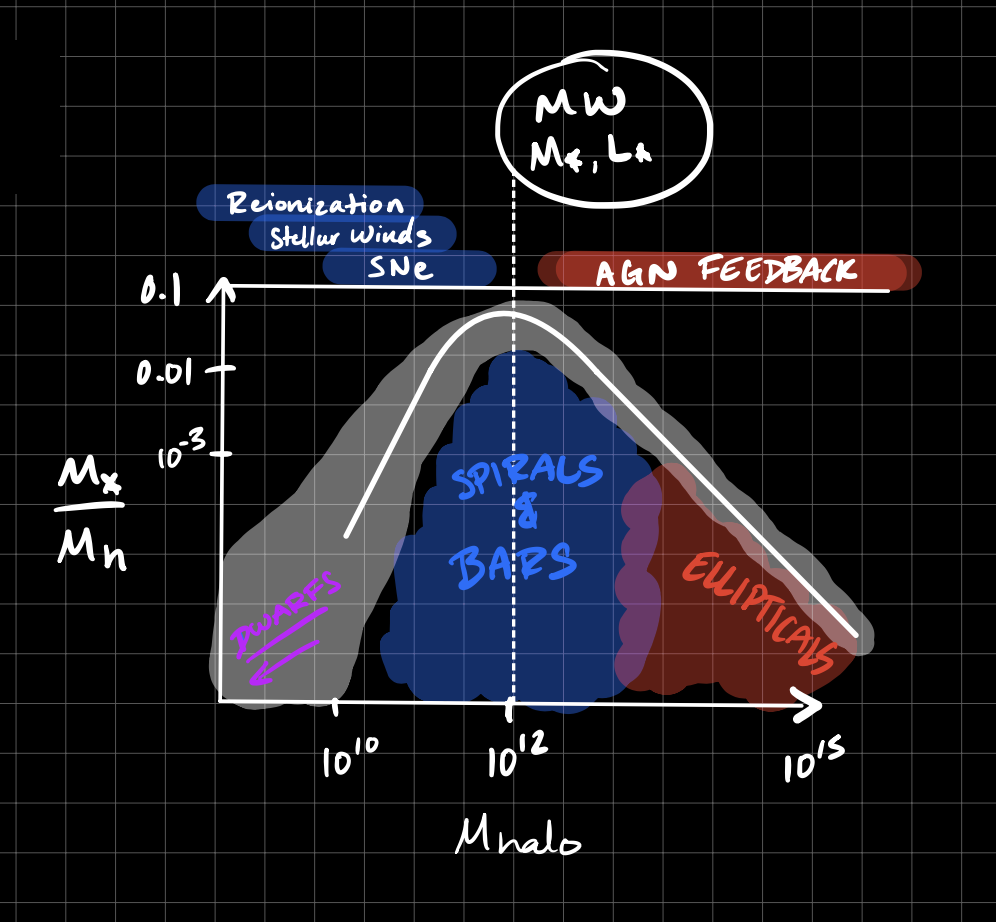 MW
M*, L*
Reionization
Stellar Winds
SNe
AGN FEEDBACK
0.1
0.01
10⁻³
M*
Mh
SPIRALS
&
BARS
ELLIPTICALS
DWARFS
10¹⁰
10¹²
10¹⁵
Mhalo